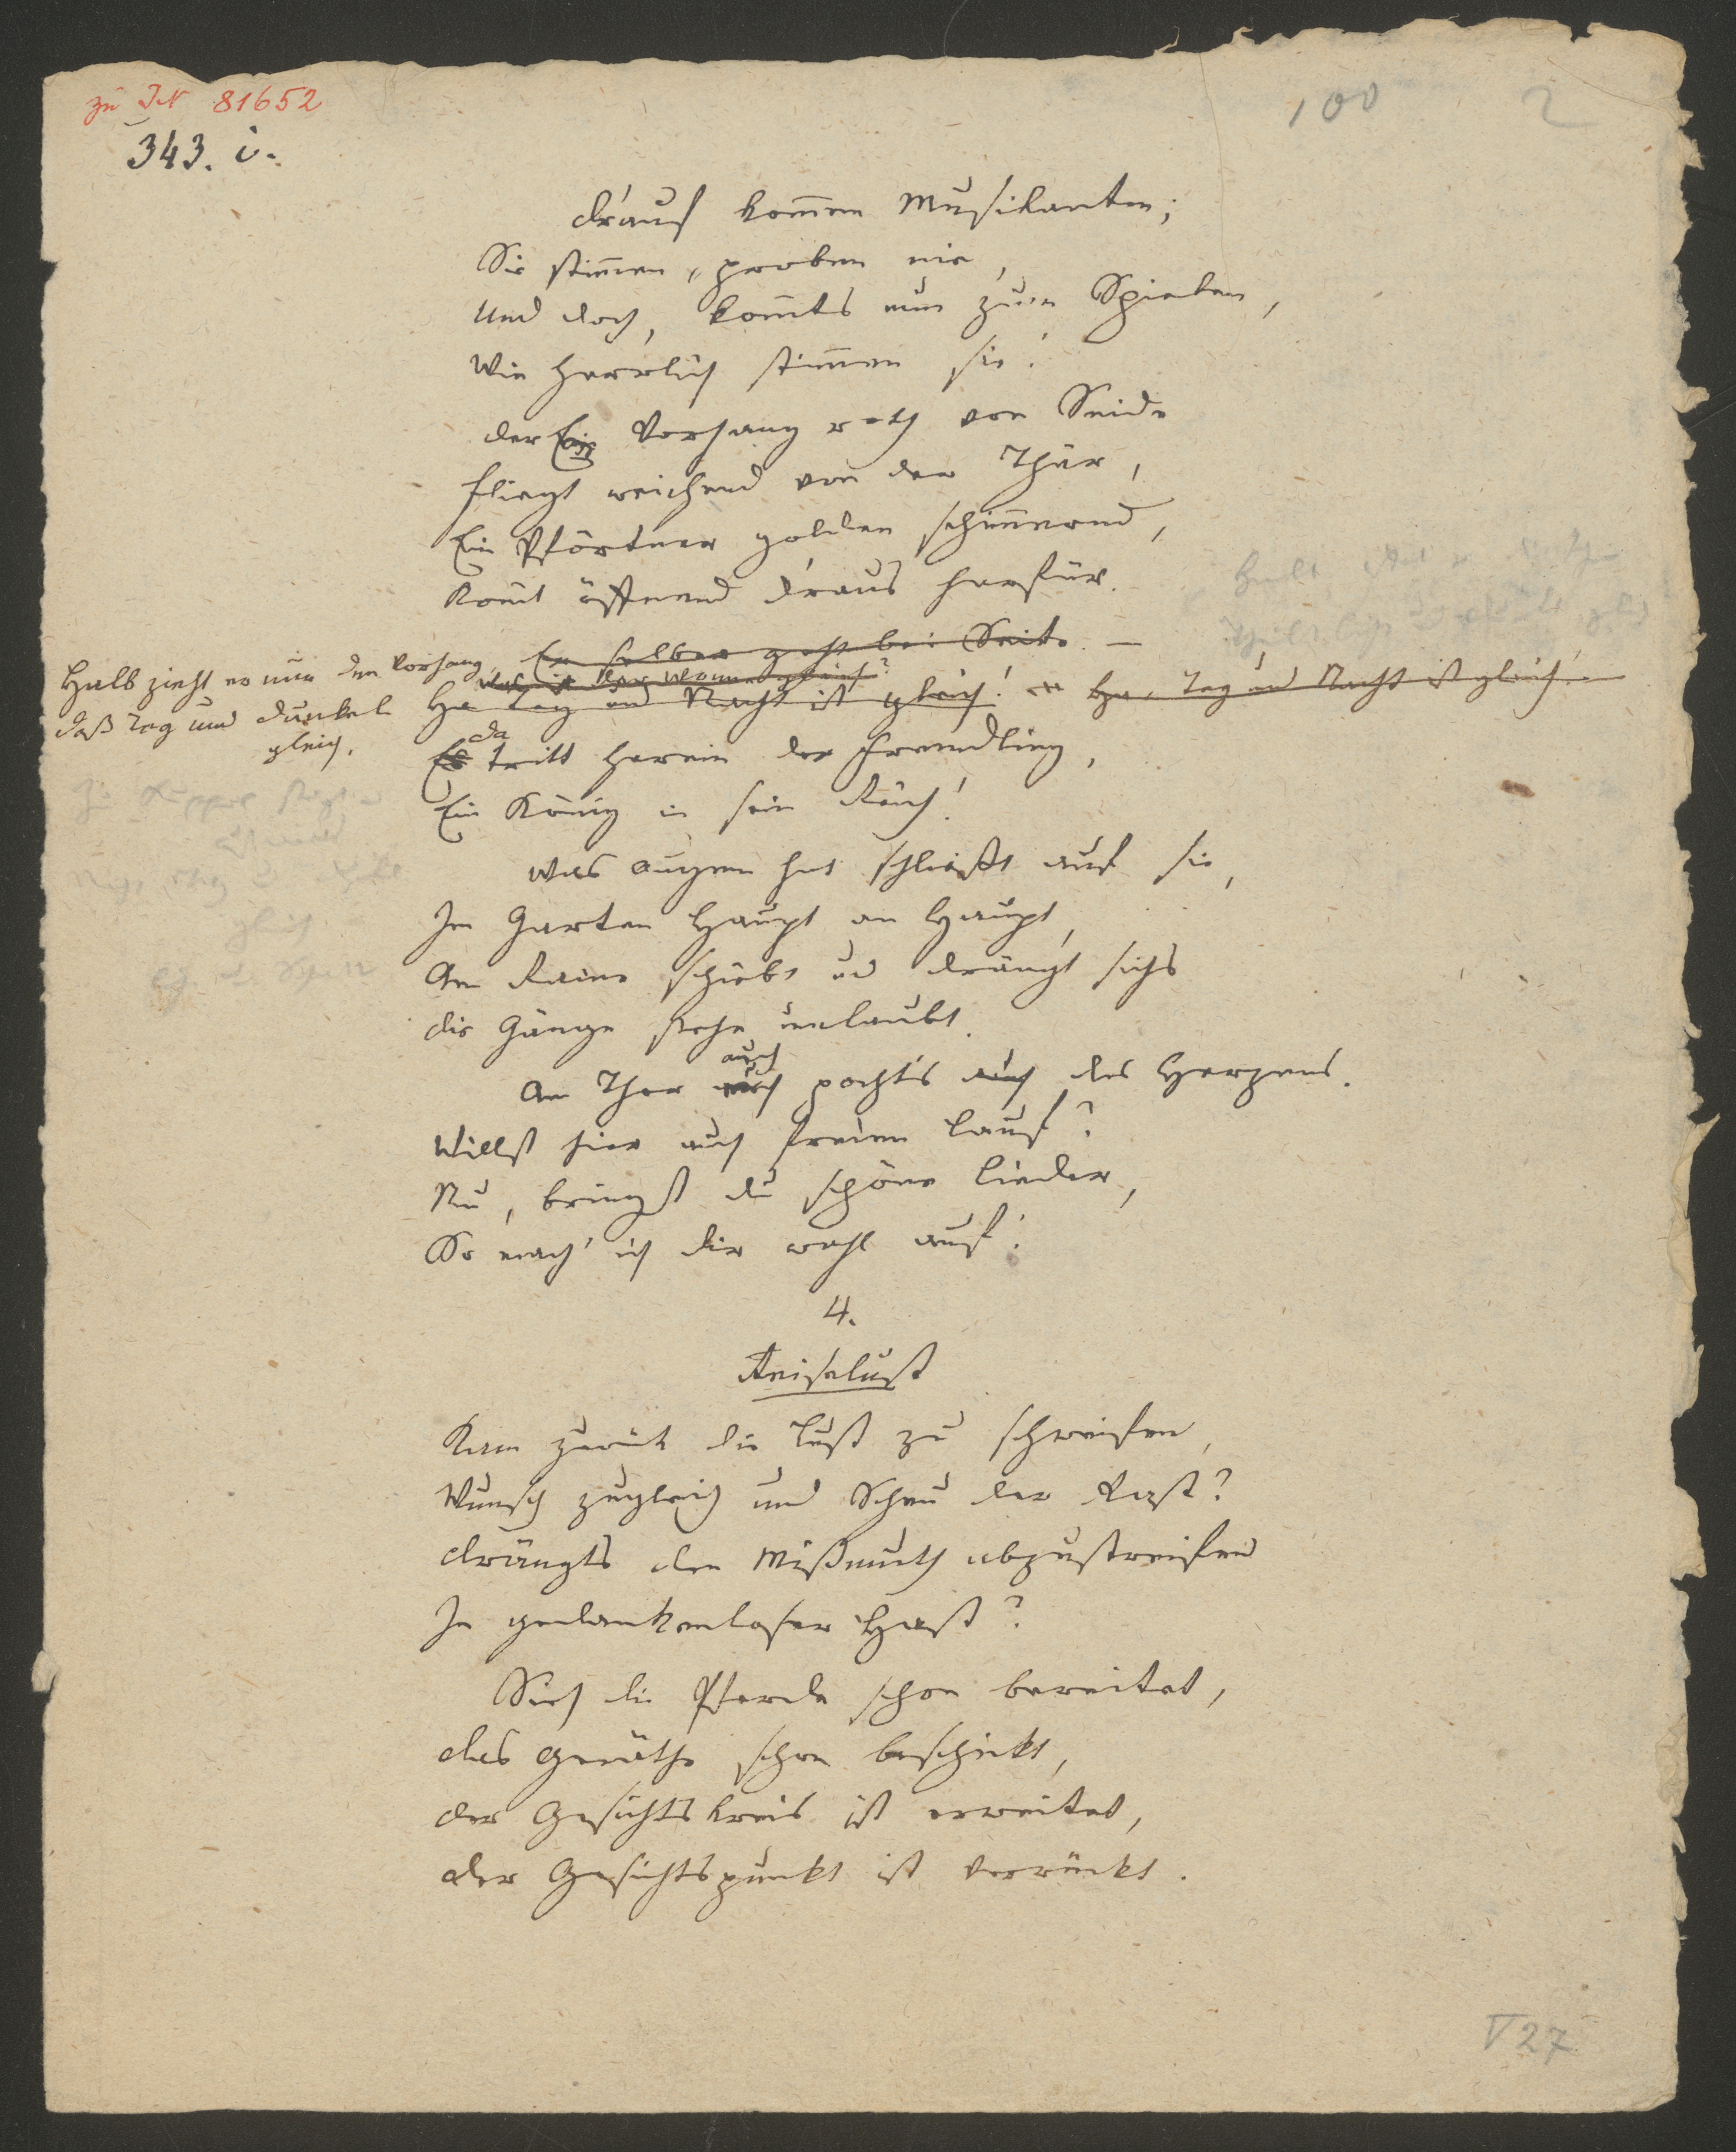 zu IN 81652
343. i.
100
2
Drauf kom̄en Musikanten;
Sie stim̄en, proben nie,
Und doch, kom̄ts nun zum Spielen,
Wie herrlich stim̄en sie!
Der Ein Vorhang roth von Seide
Fliegt weichend von der Thür,
Ein Pförtner golden schim̄ernd,
Kom̄t öffnend draus herfür.
Er selber geht bei Seite. –
Halb zieht er nun den Vorhang,
Daß Tag und Dunkel
gleich.
Ha Tag und Nacht ist gleich! Ha, Tag und Nacht ist gleich! –
da
Es tritt herein der Fremdling,
Ein König in sein Reich!
Was Augen hat schließt auf sie,
Im Garten Haupt an Haupt,
Am Raine schiebt und drängt sichs
Die Gänge stehn umlaubt.
auch
Am Thor pocht's auch des Herzens.
Willst hier auch freien Lauf?
Nu, bringst du schöne Lieder,
So mach' ich dir wohl auf!
4.
Reiselust
Kam zurück die Lust zu schweifen,
Wunsch zugleich und Scheu der Rast?
Drängts den Mißmuth abzustreifen
In gedankenloser Hast?
Sieh die Pferde schon bereitet,
Das Geräthe schon beschickt,
Der Gesichtskreis ist erweitet,
Der Gesichtspunkt ist verrückt.
V 27